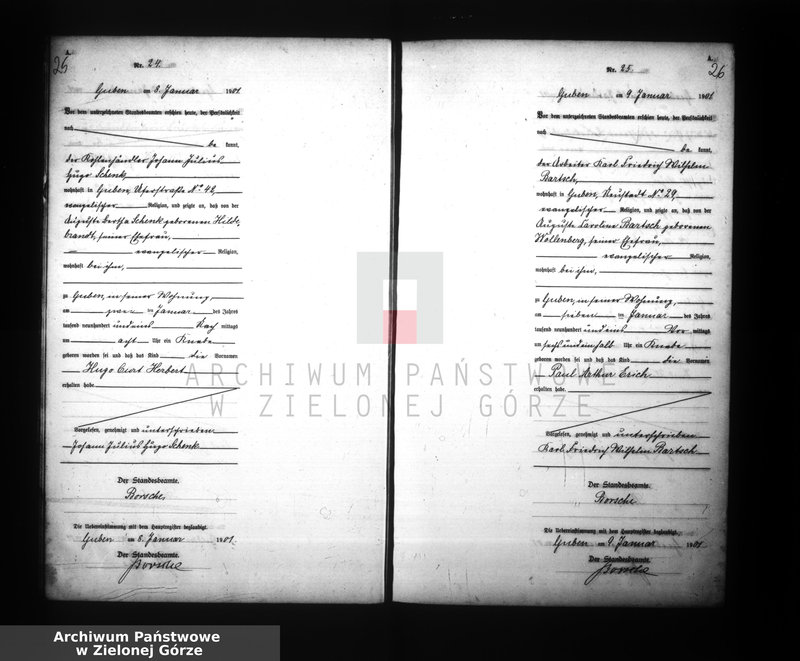 25
A.
Nr. 24.
Guben am 8. Januar 1901
Vor dem unterzeichneten Standesbeamten erschien heute, der Persönlichkeit
nach
be kannt,
der Kohlenhändler Johann Julius
Hugo Schenk,
wohnhaft in Guben, Uferstraße No 42,
evangelischer Religion, und zeigte an, daß von der
Auguste Bertha Schenk geborenen Hilde,
brandt, seiner Ehefrau,
evangelischer Religion,
wohnhaft bei ihm,
zu Guben, in seiner Wohnung,
am zwei ten Januar des Jahres
tausend neunhundert undeins Nach mittags
um acht Uhr ein Knabe
geboren worden sei und daß das Kind die Vornamen
Hugo Curt Herbert
erhalten habe
Vorgelesen, genehmigt und unterschrieben
Johann Julius Hugo Schenk
Der Standesbeamte.
Borsche
Die Uebereinstimmung mit dem Hauptregister beglaubigt.
Guben am 8. Januar 1901.
Der Standesbeamte.
Borsche
A.
26
Nr. 25.
Guben am 9. Januar 1901
Vor dem unterzeichneten Standesbeamten erschien heute, der Persönlichkeit
nach
be kannt,
der Arbeiter Karl Friedrich Wilhelm
Bartsch,
wohnhaft in Guben, Neustadt No 29,
evangelischer Religion, und zeigte an, daß von der
Auguste Caroline Bartsch geborenen
Wollenberg, seiner Ehefrau,
evangelischer Religion,
wohnhaft bei ihm,
zu Guben, in seiner Wohnung,
am sieben ten Januar des Jahres
tausend neunhundert undeins Vor mittags
um sechs und einhalb Uhr ein Knabe
geboren worden sei und daß das Kind die Vornamen
Paul Arthur Erich
erhalten habe.
Vorgelesen, genehmigt und unterschrieben
Karl Friedrich Wilhelm Bartsch
Der Standesbeamte.
Borsche
Die Uebereinstimmung mit dem Hauptregister beglaubigt.
Guben am 9. Januar 1901
Der Standesbeamte.
Borsche
ARCHIWUM PAŃSTWOWE
W ZIELONEJ GÓRZE
Archiwum Państwowe
w Zielonej Górze